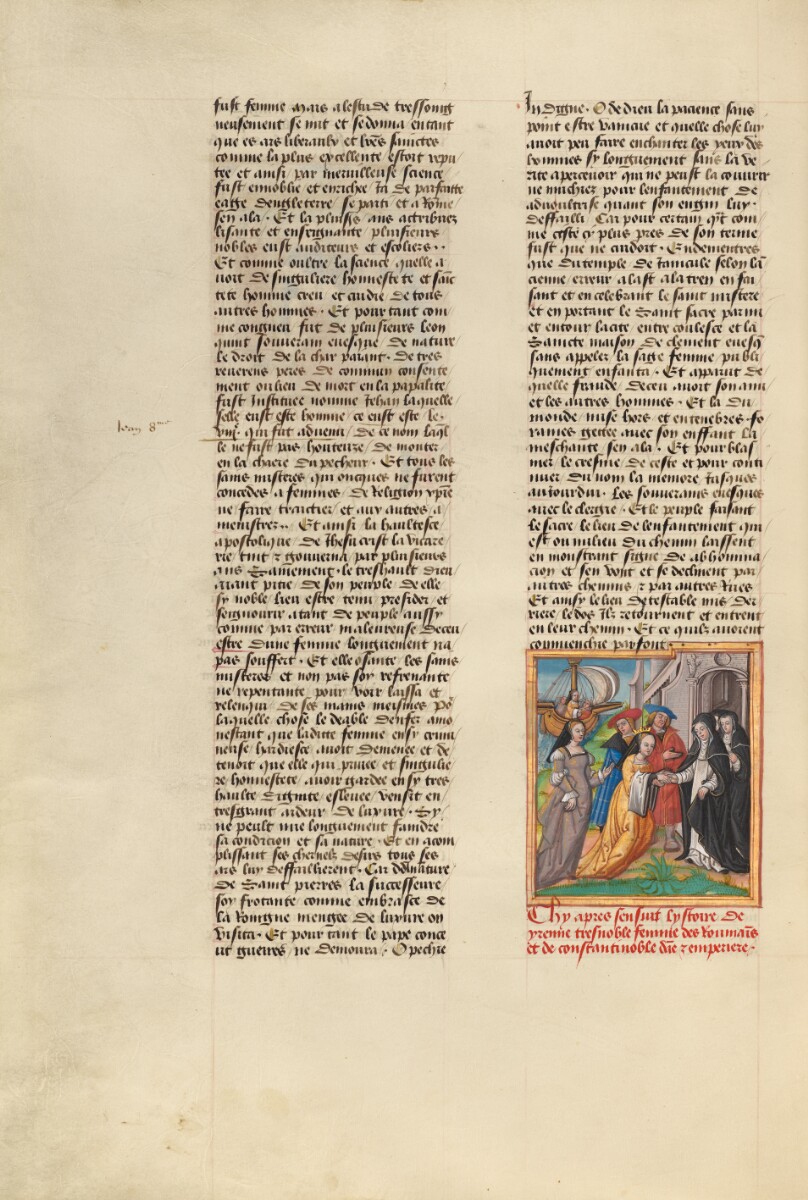 fust femme mais a lestude tressoing
neusement se mit et se donna en tant
que es ars liberaulx et lrēs sainctes
comme la plus excellente estoit repu
tee et ainsi par merveilleuse science
fust ennoblie et enrichee Ja de parfaitte
eatge dengleterre se parti et a Rōme
sen ala. Et la plusrs ans
lisante et enseignante plusieurs
nobles eust auditeurs et escoliers
Et comme oultre la science quelle a
uoit de singuliere honnestete et sainc
tete homme creu et cuidie de tous
autres hommes. Et pour tant com
me congneu fut de plusieurs leon
quint souuerain euesque de nature
le droit de la char paiant. De tres
reuerens peres de commun consente
ment ou lieu de mort en la papalite
fust Instituee nomme Jehan laquelle
selle eust este homme ce eust este le
viij. qui fut aduenu de ce nom laqͣl
le ne fust pas honteuze de monter
en la chaere du pecheur. Et tous les
sains misteres qui oncques ne furent
concedes a femmes de Religion xpiēne
ne faire traictier et aux autres a
menistrer. Et ainsi la haultesce
apostolique de Jhesucrist la vicare
rie tint et gouuerna par plusieurs
ans Saīnement le treshault dieu
aiant pitie de son peuple de elle
sy noble lieu estre tenu presider et
seignourir a tant de peuple aussy
comme par erreur maleureuse deceu
estre dune femme longuement na
pas souffert. Et elle osante les sains
misteres et non pas soy refrenante
ne repentante pour voir laissa et
relenqui de ses mains meismes Po
laquelle chose le deable denfer amo
nestant que laditte femme en sy crimi
neuse hardiesce auoit demenee et de
tenoit que elle qui priuee et singulie
re honnestete auoir gardee en sy tres
haulte dignite esleuee venist en
tresgrant ardeur de luxure. Sy
ne peult mie longuement faindre
sa condicion et sa nature. Et en acom
plissant ses chernelz desirs tous ses
ars luy deffaillierent. Car
de Saint pierres la successeure
soy frotante comme embrasee de
la Rongne mengee de luxure on
visita. Et pour tant le pape conce
ut guerres ne demoura. O pechie
Jean 8me
Indigne. O de dieu la pacience sans
point estre vaincue et quelle chose luy
auoit peu faire enchanter les yeux des
hommes sy longuement sans la ve
rite apercevoir qui ne peust la couurir
ne muchier pour lenfantement de
aduoultrise quant son engin luy
deffailli Car pour certain qͣnt com
me ceste cy plus pres de son terme
fust que ne cuidoit. Endementres
que du temple de Janicule selon lā
cienne erreur alast a latren en fai
sant et en celebrant le saint mistere
et en portant le Saint sacre parmi
et entour la cite entre coulesce et la
Saincte maison de clement euesq̄
sans appeler la sage femme publi
quement enfanta. Et apparut de
quelle fraude deceu auoit son ami
et les autres hommes. Et la du
monde mise hors et en tenebres fo
raines gettee auec son enffant la
meschante sen ala. Et pour blas
mer le cresme de ceste et pour conti
nuer du nom la memore Jusques
au Jourdui. Les souuerains euesques
auec le clergie. Et le peuple faisant
le sacre le lieu de lenfantement qui
est ou milieu du chemin laissent
en monstrant signe de abhomina
cion et sen vont et se declinent par
autres chemins et par autres Rues
Et ainsy le lieu detestable mis der
riere le dos Ilz retournent et entrent
en leur chemin. Et ce quilz auoient
commenchie parfont.
Chy apres sensuit lystoire de
yrenne tresnoble femme des Roumaīs
et de constantinoble dūe et emperiere.